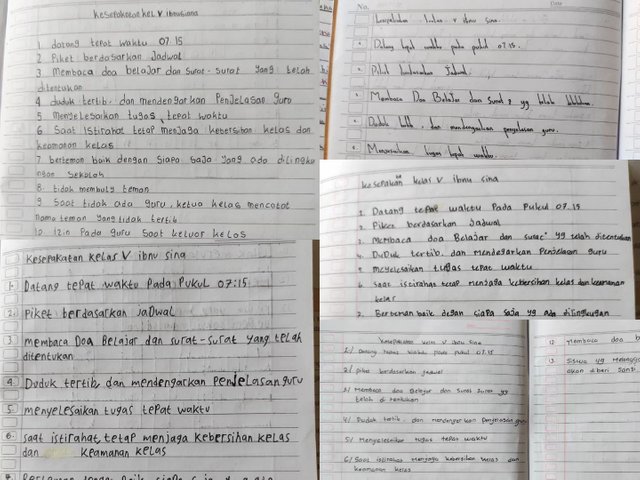 Kesepakatan Kel V Ibnu Sina
1 datang tepat waktu 07.15
2 Piket berdasarkan Jadwal
3 Membaca doa belajar dan surat-surat yang telah
ditentukan
4 duduk tertib, dan mendengarkan Penjelasan guru
5 menyelesaikan tugas, tepat waktu
6 Saat Istirahat tetap menjaga kebersihan kelas dan
keamanan kelas
7 berteman baik dengan siapa saja yang ada dilingku
ngan sekolah
8. tidak membuly teman
9 Saat tidak ada guru, ketua kelas mencatat
nama teman yang tidak tertib
10 Izin Pada guru saat keluar kelas
No.
Date
Kesepakatan kelas v ibnu sina.
1. Datang tepat waktu pada pukul 07.15.
2. Piket berdasarkan Jadwal.
3. Membaca Doa Belajar dan Surat2 yg telah
4. Duduk tertib, dan mendengarkan penjelasan guru.
5. Menyelesaikan tugas tepat waktu.
Kesepakatan kelas V ibnu sina
1. Datang tepat waktu Pada Pukul 07.15
2. Piket berdasarkan jadwal
3. Membaca doa Belajar dan surat² yg telah ditentukan
4. Duduk tertib, dan mendegarkan Penjelasan guru
5. menyelesaikan tugas tepat waktu
6. saat istirahat tetap menjaga kebersihan kelas dan keamanan
kelas
7. Berteman baik degan siapa saja yg ada dilingkungan
Kesepakatan Kelas V Ibnu Sina
1. Datang tepat waktu Pada Pukul 07:15
2. Piket berdasarkan jadwal
3 membaca Doa Belajar dan surat-surat yang telah
ditentukan
4. Duduk tertib, dan mendengarkan Penjelasan guru
5 menyelesaikan tugas tepat waktu
6. saat istirahat, tetap menjaga kebersihan kelas
dan keamanan kelas
Kesepakatan kelas V Ibnu Sina
1/ Datang tepat waktu pada pukul 07.15
2/ piket berdasarkan jadwal
3/ Membaca doa Belajar dan Surat Surat yg
telah di tentukan
4/ Duduk tertib, dan mendengarkan Penjelasan guru
5/ Menyelesaikan tugas tepat waktu
6/ Saat istirahat menjaga kebersihan kelas dan
keamanan kelas
12 Membaca doa b
13 Siswa yg Melangga
akan diberi Sank